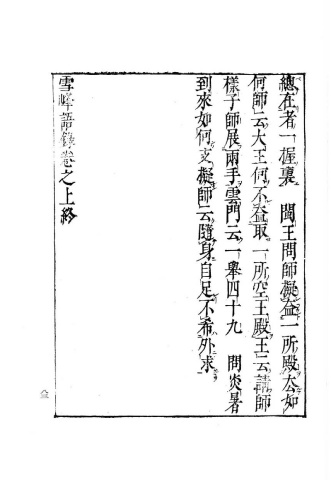 總在者一握裏　閩王問師擬蓋一所殿去如
何師云大王何不蓋取一所空王殿王云請師
樣子師展兩手雲門云一舉四十九　問炎暑
到來如何支擬師云隨身自足不希外求
雪峰語錄卷之上終